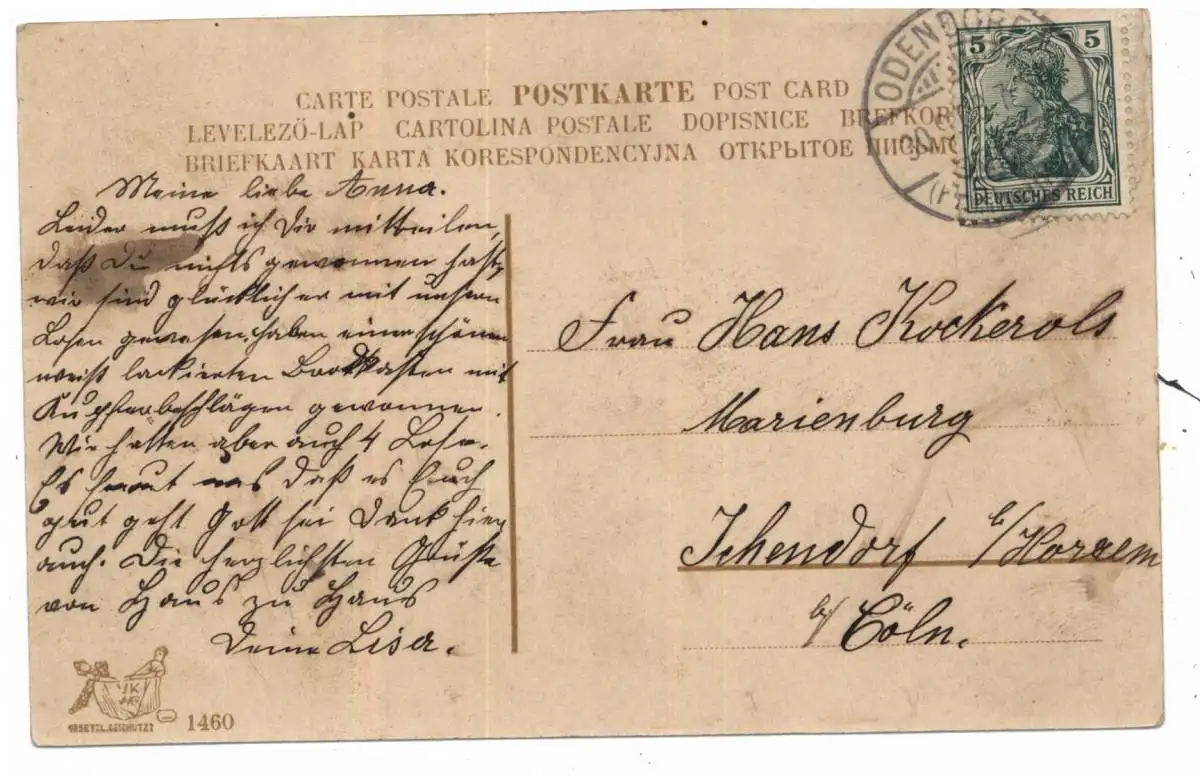 CARTE POSTALE POSTKARTE POST CARD
LEVELEZŐ-LAP CARTOLINA POSTALE DOPISNICE BREFKOR
BRIEFKAART KARTA KORESPONDENCYJNA ОТКРЫТОЕ ПИСЬМО
ODENDORF
30
5 5
DEUTSCHES REICH
Meine liebe Anna.
Leider muß ich Dir mitteilen,
daß Du nichts gewonnen hast,
wir sind glücklicher mit unsern
Losen gewesen, haben einen schönen
weiß lackierten Brotkasten mit
Kupferbeschlägen gewonnen.
Wir hatten aber auch 4 Lose.
Es freut uns daß es Euch
gut geht Gott sei Dank hier
auch. Die herzlichsten Grüße
von Haus zu Haus
Deine Lisa.
Frau Hans Kockerols
Marienburg
Ichendorf b/Horrem
b/ Cöln.
GESETZL. GESCHÜTZT
1460